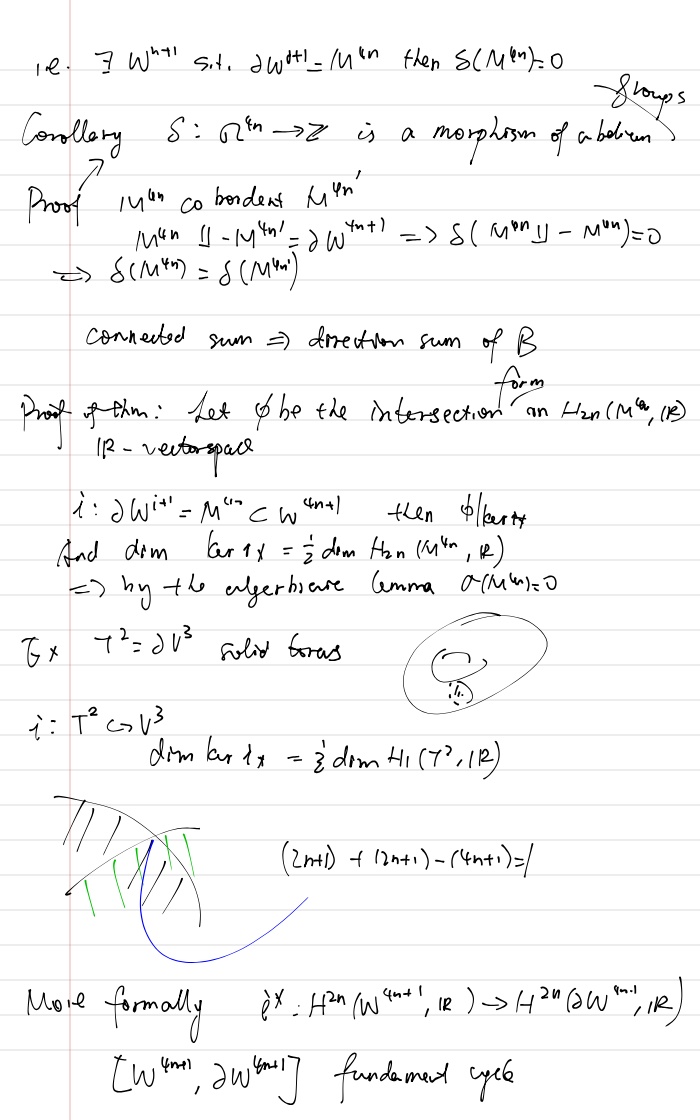 i.e. ∃ W^{n+1} s.t. ∂W^{d+1} = M^{4n} then δ(M^{4n}) = 0
groups
Corollary δ: Ω^{4n} → Z is a morphism of abelian
Proof M^{4n} cobordent M^{4n'}
M^{4n} ∐ -M^{4n'} = ∂W^{4n+1} => δ(M^{4n} ∐ - M^{4n}) = 0
=> δ(M^{4n}) = δ(M^{4n'})
connected sum => direction sum of B
form
Proof of thm: Let φ be the intersection on H_{2n}(M^{4n}, IR)
IR - vectorspace
i: ∂W^{i+1} = M^{4n} ⊂ W^{4n+1} then φ|ker i_*
And dim ker i_* = ½ dim H_{2n}(M^{4n}, IR)
=> by the algerbraic Lemma σ(M^{4n}) = 0
Ex T² = ∂V³ solid torus
i: T² ↪ V³
dim ker i_* = ½ dim H_1(T², IR)
(2n+1) + (2n+1) - (4n+1) = 1
More formally i^*: H^{2n}(W^{4n+1}, IR) → H^{2n}(∂W^{4n+1}, IR)
[W^{4n+1}, ∂W^{4n+1}] fundament cycle